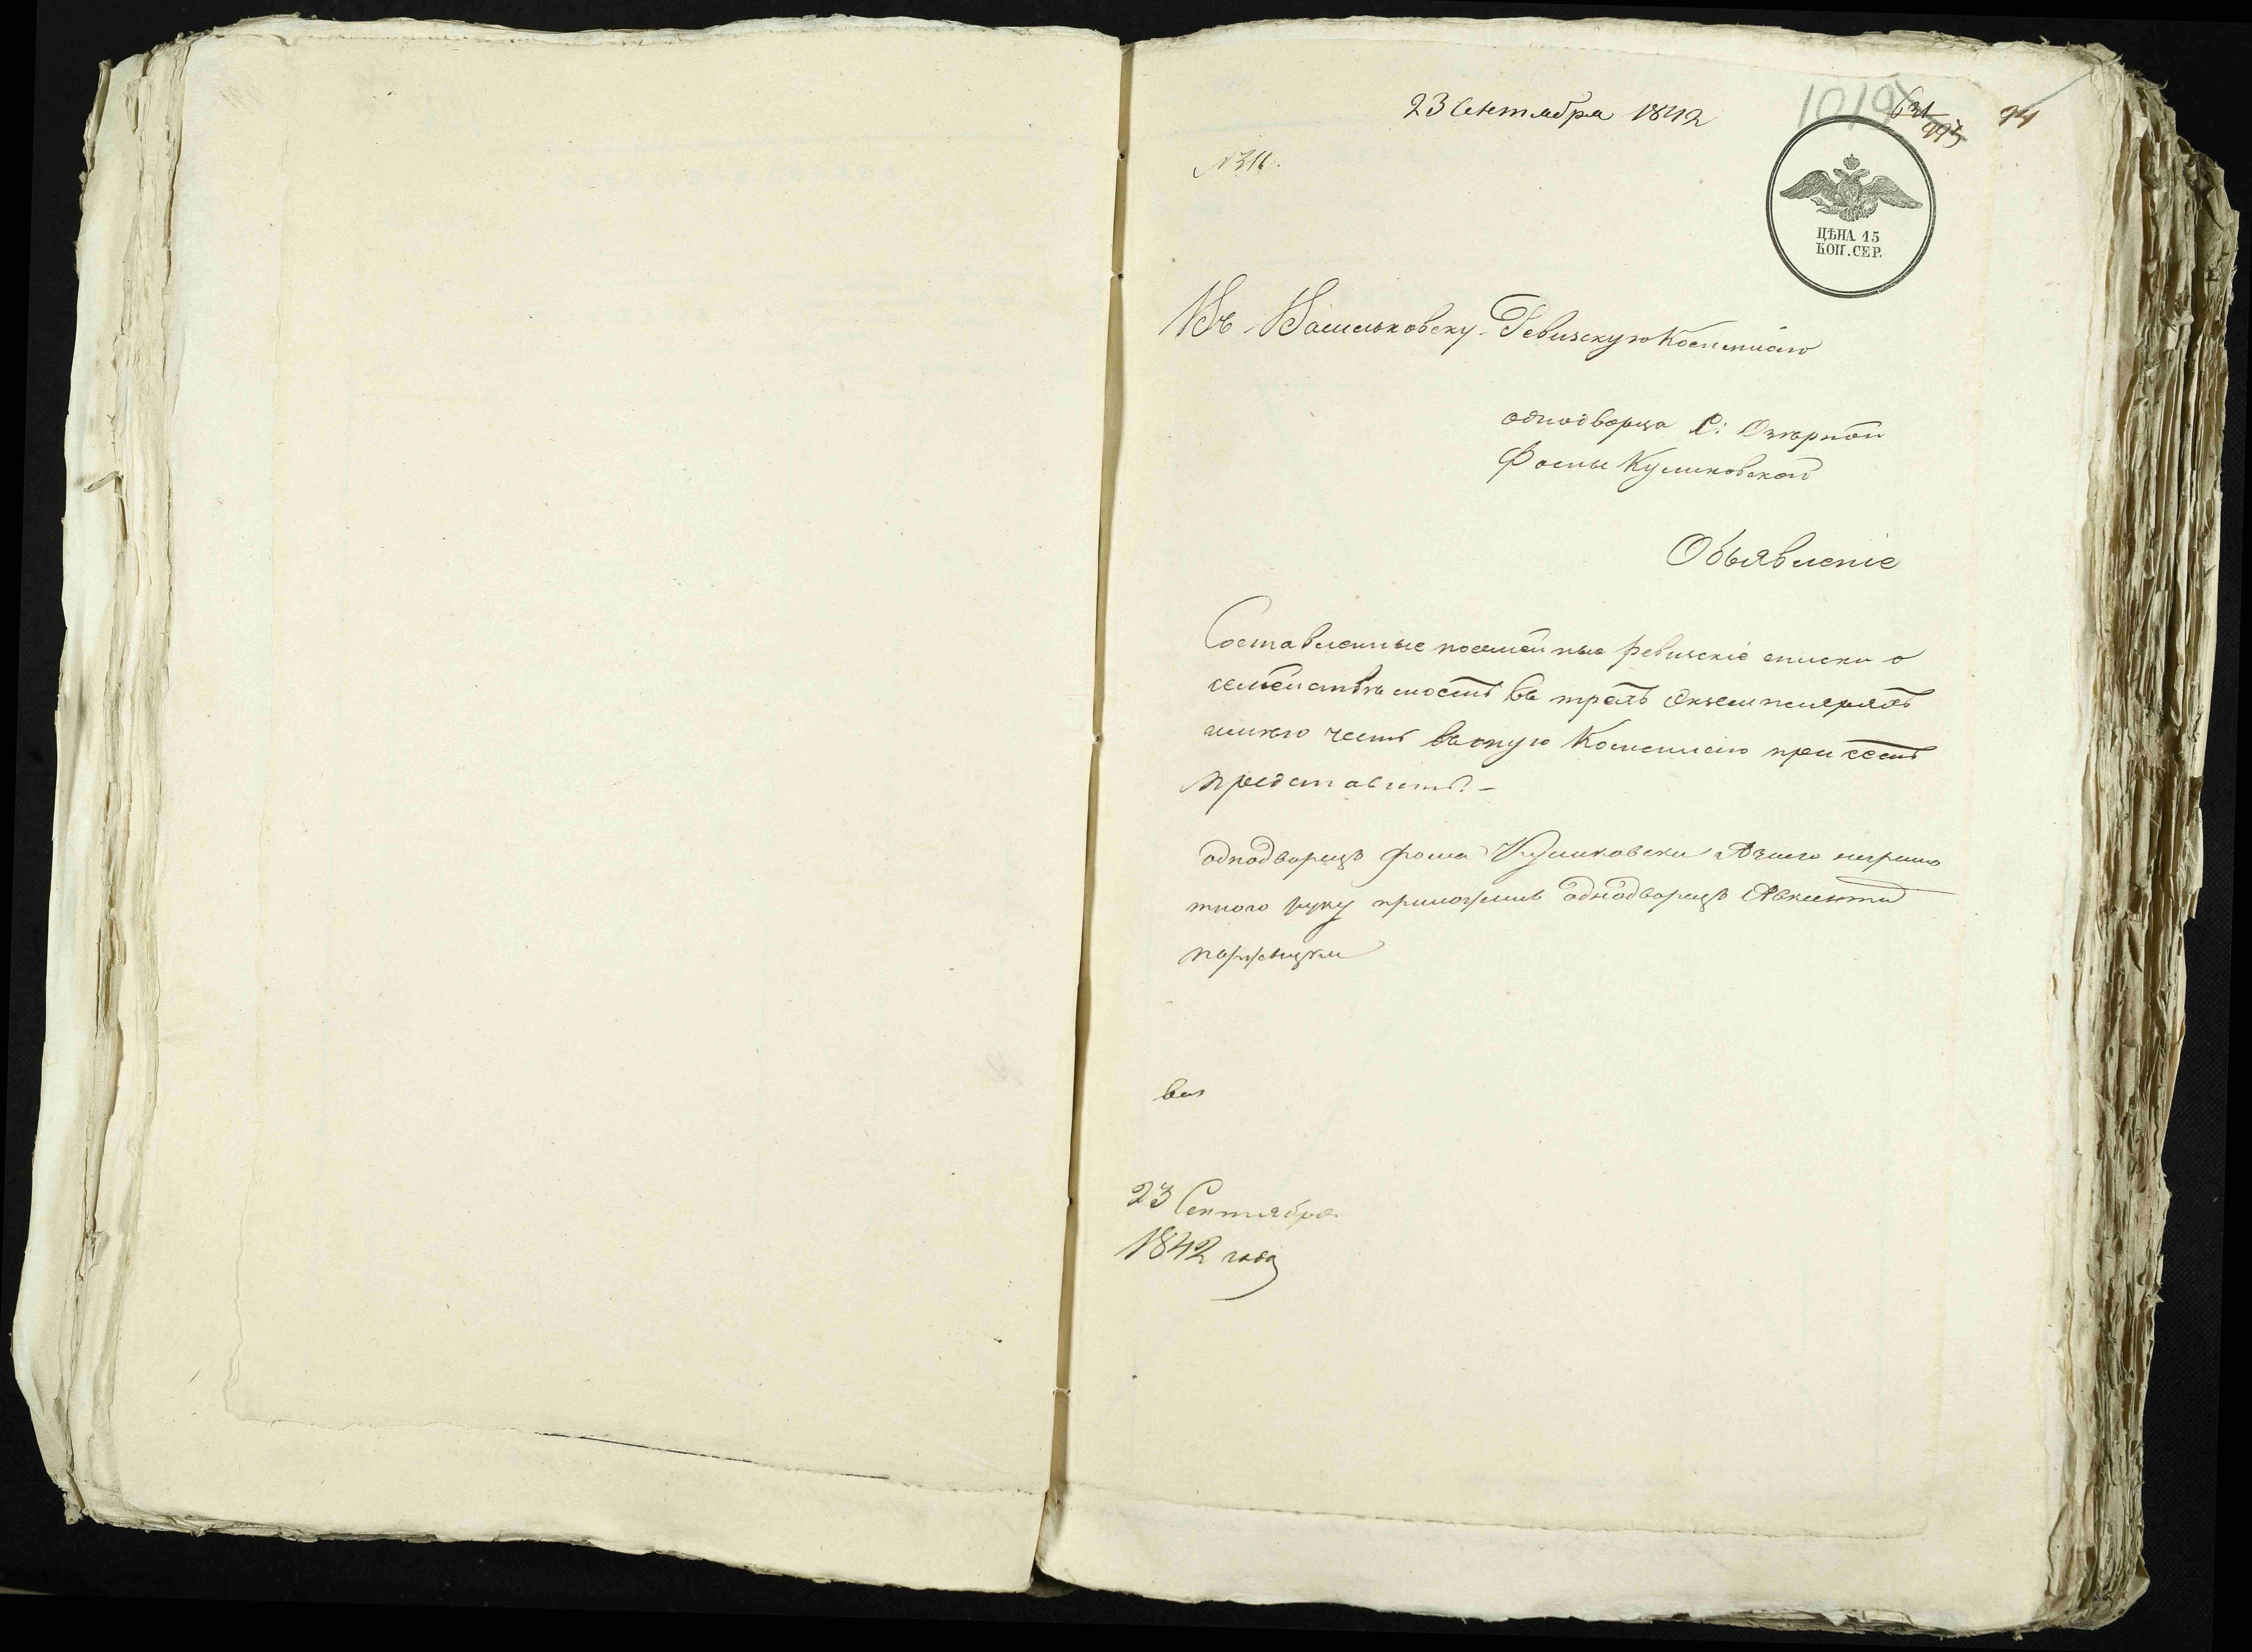 23 Сентября 1842
1019
631
94
N 311.
ЦѢНА 15
КОП. СЕР.
Въ Васильковску Ревизскую Коммисію
однодворца С: Озѣрной
Фомы Куликовской
Объявленіе
Составленные посемейные ревизскіе списки о
семействѣ моемъ въ трехъ экземплярахъ
имѣю честь въ оную Коммисію при семъ
представить. —
однодворецъ фома Куликовски Азаего неграмо
тного руку приложилъ однодворецъ Авксенти
23 Сентября
1842 года